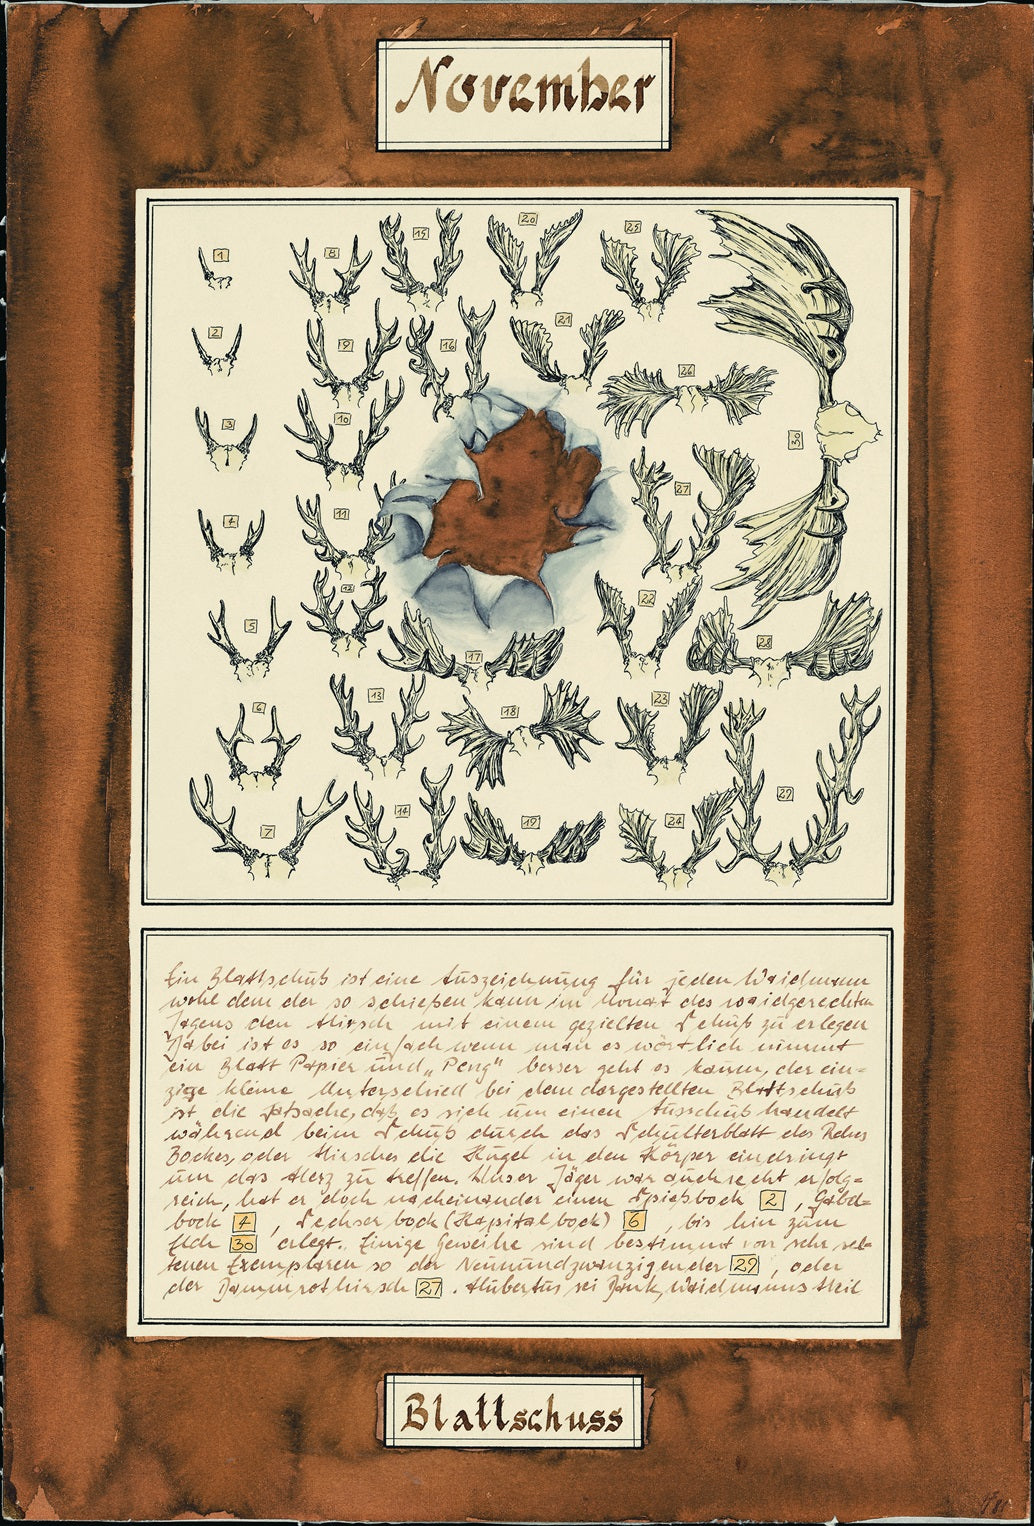 November
1
8
15
20
25
2
9
16
21
26
3
10
30
4
11
27
5
12
17
22
28
6
13
18
23
7
14
19
24
29
Ein Blattschuß ist eine Auszeichnung für jeden Waidmann
wohl dem der so schießen kann im Monat des waidgerechten
Jagens den Hirsch mit einem gezielten Schuß zu erlegen
Dabei ist es so einfach wenn man es wörtlich nimmt
ein Blatt Papier und „Peng" besser geht es kaum, der ein=
zige kleine Unterschied bei dem dargestellten Blattschuß
ist die Tatsache, daß es sich um einen Ausschuß handelt
während beim Schuß durch das Schulterblatt des Rehes
Bockes, oder Hirsches die Kugel in den Körper eindringt
um das Herz zu treffen. Unser Jäger war auch recht erfolg=
reich, hat er doch nacheinander einen Spießbock 2, Gabel=
bock 4, Sechser bock (Kapitalbock) 6, bis hin zum
Elch 30 erlegt. Einige Geweihe sind bestimmt von sehr sel=
tenen Exemplaren so der Neunundzwanzigender 29, oder
der Dammrothirsch 27. Hubertus sei Dank, Waidmanns Heil
Blattschuss